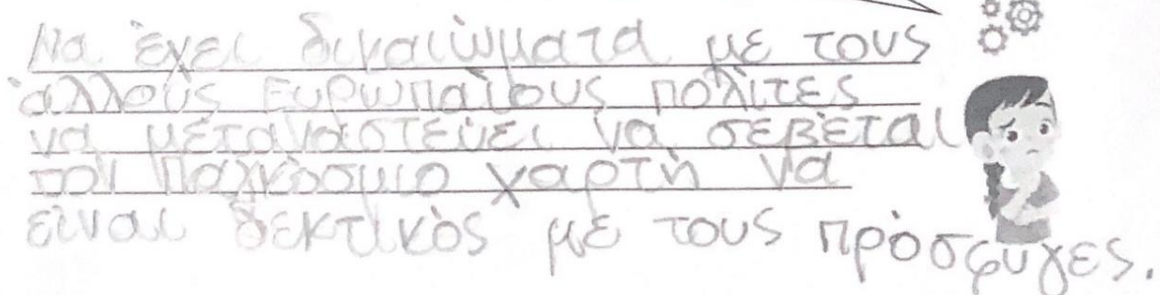 Να έχει δικαιώματα με τους
άλλους Ευρωπαίους πολίτες
να μεταναστεύει να σεβεται
τον Παγκόσμιο χαρτη να
είναι δεκτικός με τους πρόσφυγες.